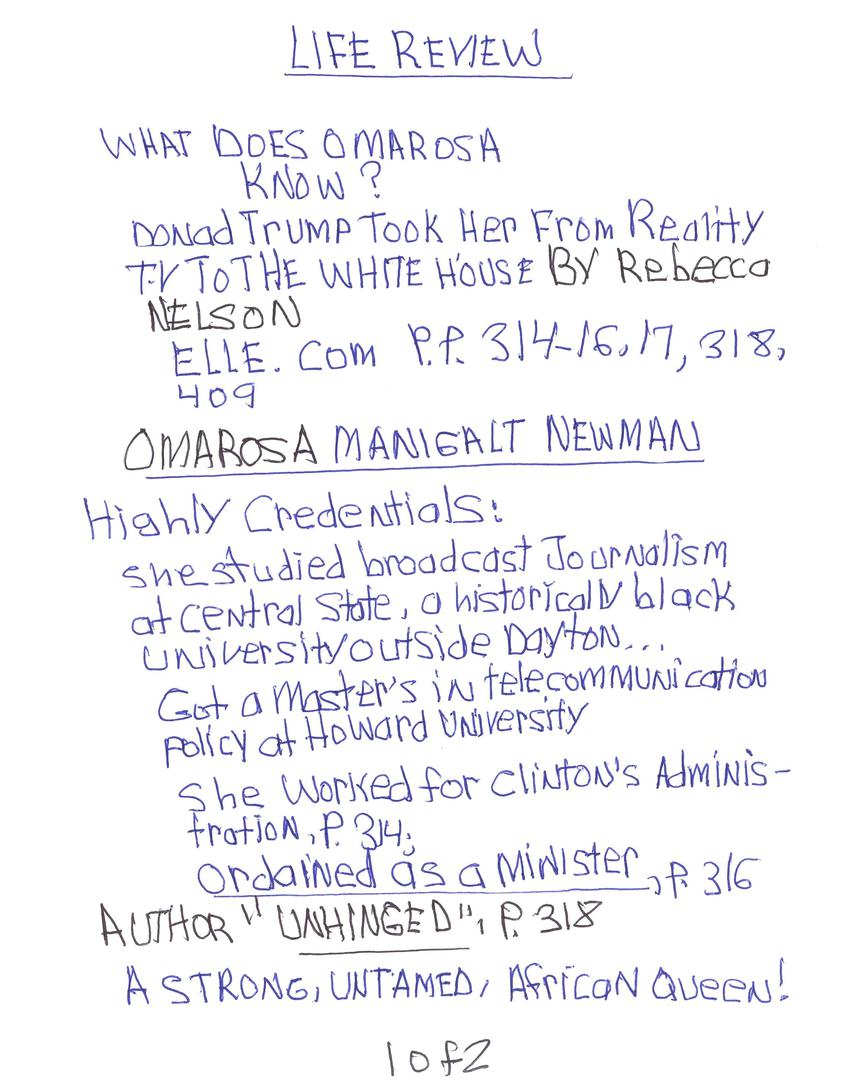 LIFE REVIEW
WHAT DOES OMAROSA
KNOW?
DONad TRUMP TOOK Her From Reality
T.V TO THE WHITE HOUSE BY Rebecca
NELSON
ELLE. Com P.P. 314-16, 17, 318,
409
OMAROSA MANIGALT NEWMAN
Highly Credentials:
she studied broadcast Journalism
at central State, a historically black
university outside Dayton...
Got a Master's in telecommunication
policy at Howard University
She Worked for Clinton's Adminis-
tration, P. 314;
Ordained as a Minister, P. 316
AUTHOR "UNHINGED", P. 318
A STRONG, UNTAMED, African Queen!
1 of 2